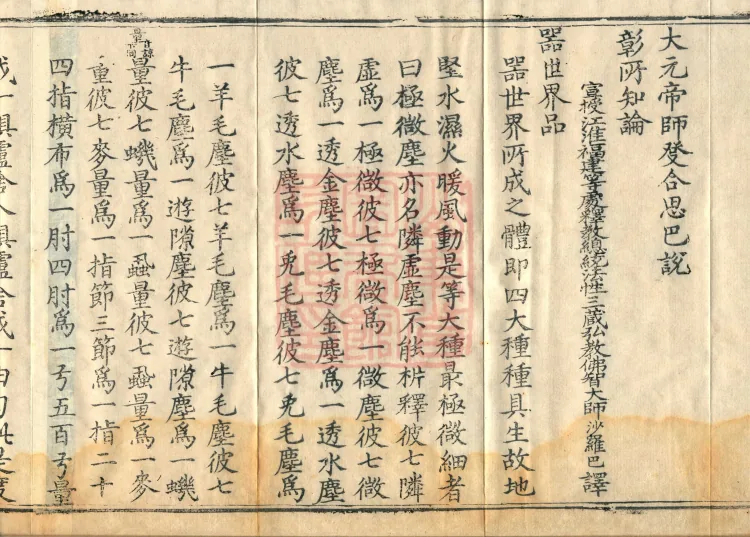 大元帝師癹合思巴說
彰所知論
宣授江淮福建等處釋教總統法性三藏弘教佛智大師沙羅巴譯
器世界品
器世界所成之體即四大種種具生故地
堅水濕火暖風動是等大種最極微細者
曰極微塵亦名隣虛塵不能析釋彼七隣
虛爲一極微彼七極微爲一微塵彼七微
塵爲一透金塵彼七透金塵爲一透水塵
彼七透水塵爲一兎毛塵彼七兎毛塵爲
一羊毛塵彼七羊毛塵爲一牛毛塵彼七
牛毛塵爲一遊隙塵彼七遊隙塵爲一蟣
量彼七蟣量爲一蝨量彼七蝨量爲一麥
重彼七麥量爲一指節三節爲一指二十
四指橫布爲一肘四肘爲一弓五百弓量
成一俱盧舍八俱盧舍成一由旬此是度